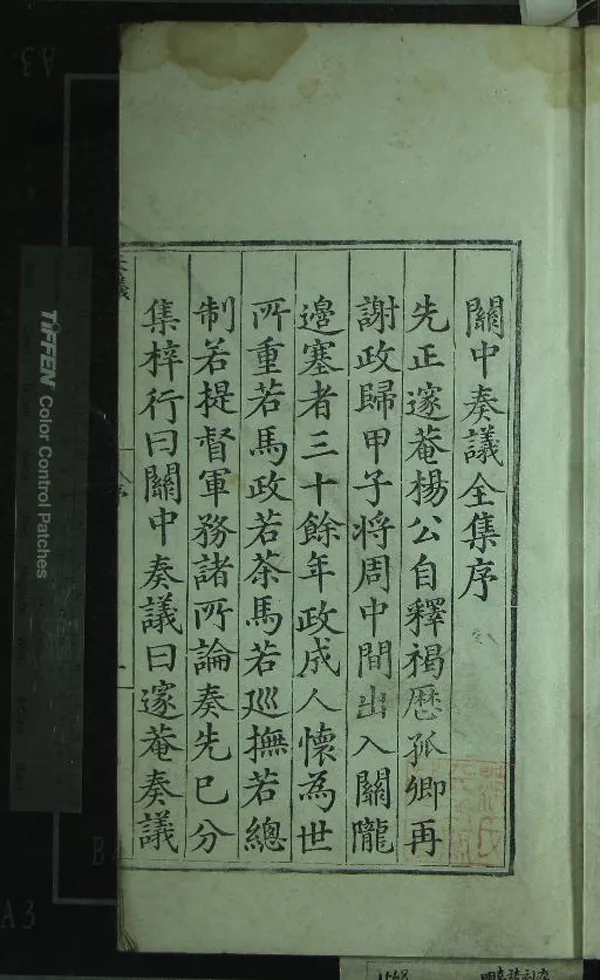 關中奏議全集序
先正邃菴楊公自釋褐歷孤卿再
謝政歸甲子將周中間出入關隴
邊塞者三十餘年政成人懷為世
所重若馬政若茶馬若巡撫若總
制若提督軍務諸所論奏先已分
集梓行曰關中奏議曰邃菴奏議
TIFFEN Color Control Patches
A3